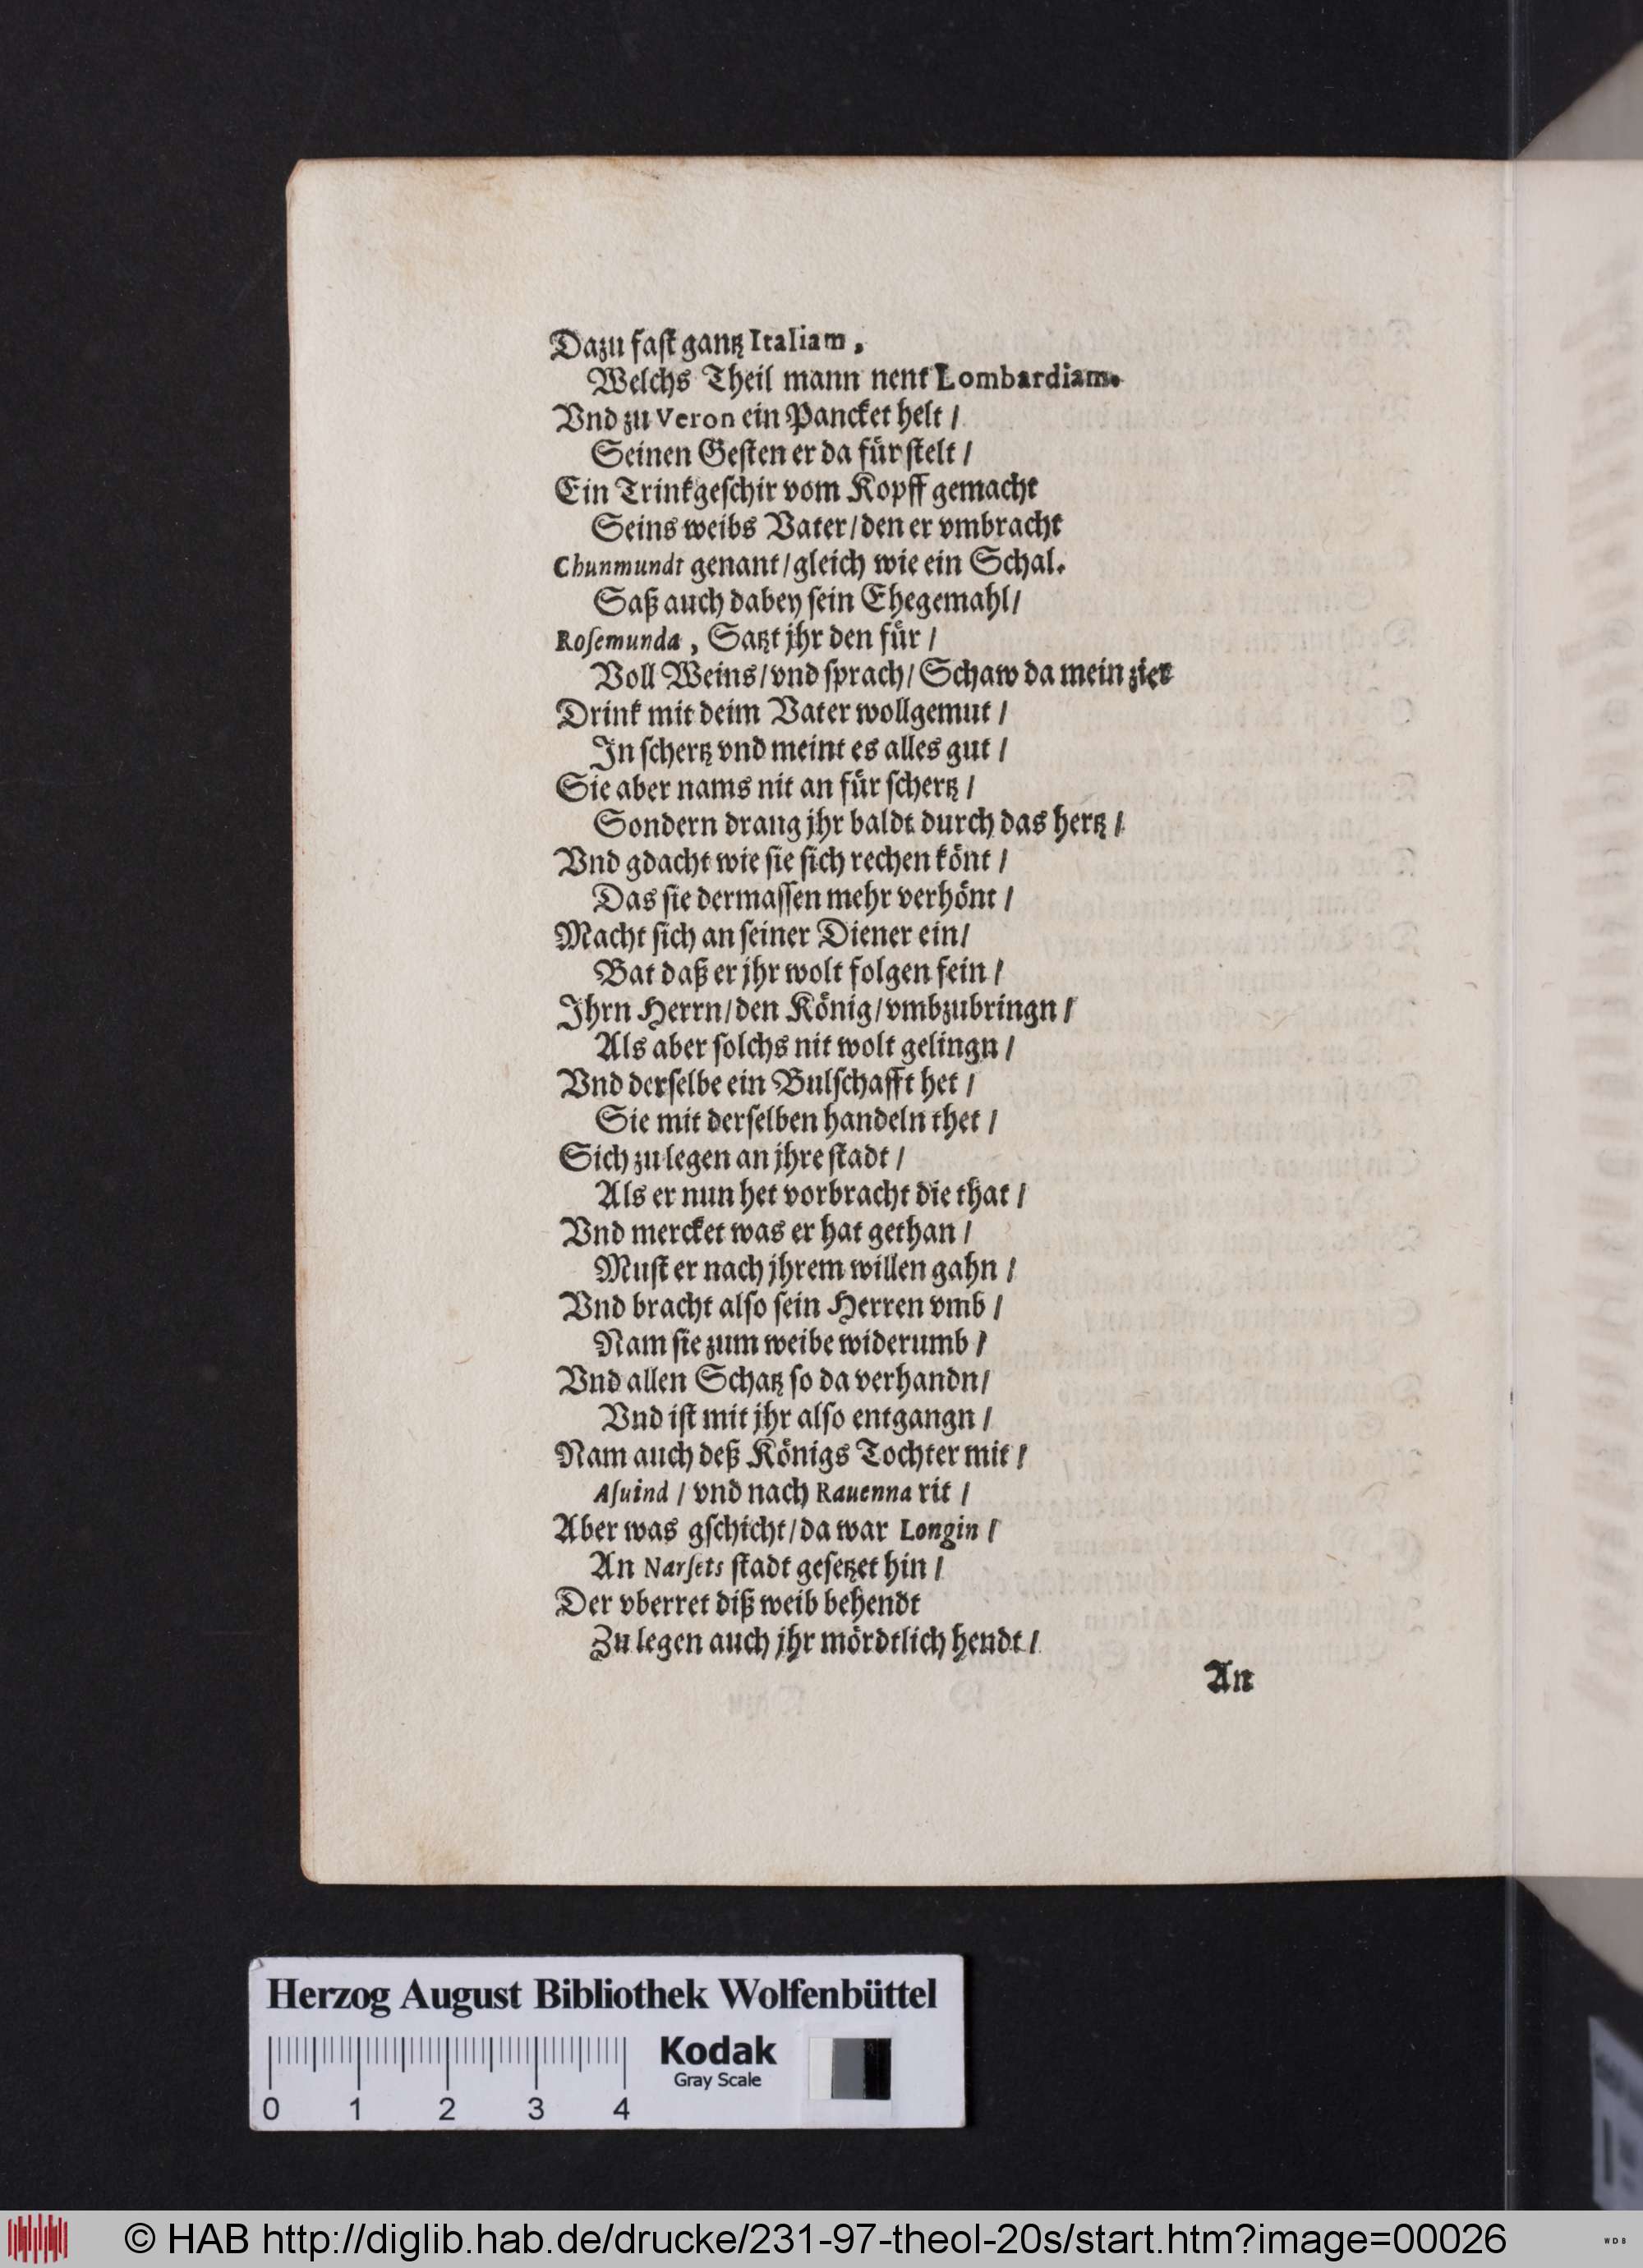 Dazu faſt gantz Italiam,
Welchs Theil mann nent Lombardiam.
Vnd zu Veron ein Pancket helt /
Seinen Geſten er da fürſtelt /
Ein Trinkgeſchir vom Kopff gemacht
Seins weibs Vater / den er vmbracht
Chunmundt genant / gleich wie ein Schal.
Saß auch dabey ſein Ehegemahl /
Roſemunda, Satzt jhr den für /
Voll Weins / vnd ſprach / Schaw da mein zier
Drink mit deim Vater wollgemut /
In ſchertz vnd meint es alles gut /
Sie aber nams nit an für ſchertz /
Sondern drang jhr baldt durch das hertz /
Vnd gdacht wie ſie ſich rechen könt /
Das ſie dermaſſen mehr verhönt /
Macht ſich an ſeiner Diener ein /
Bat daß er jhr wolt folgen fein /
Ihrn Herrn / den König / vmbzubringn /
Als aber ſolchs nit wolt gelingn /
Vnd derſelbe ein Bulſchafft het /
Sie mit derſelben handeln thet /
Sich zu legen an jhre ſtadt /
Als er nun het vorbracht die that /
Vnd mercket was er hat gethan /
Muſt er nach jhrem willen gahn /
Vnd bracht alſo ſein Herren vmb /
Nam ſie zum weibe widerumb /
Vnd allen Schatz ſo da verhandn /
Vnd iſt mit jhr alſo entgangn /
Nam auch deß Königs Tochter mit /
Aſuind / vnd nach Rauenna rit /
Aber was gſchicht / da war Longin /
An Narſets ſtadt geſetzet hin /
Der vberret diß weib behendt
Zu legen auch jhr mördtlich hendt /
An
Herzog August Bibliothek Wolfenbüttel
Kodak
Gray Scale
0 1 2 3 4
© HAB http://diglib.hab.de/drucke/231-97-theol-20s/start.htm?image=00026
WDB